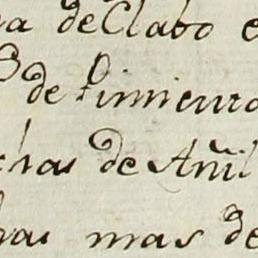 a de Clabo e
de Pimienta
chas de Añil
has mas de